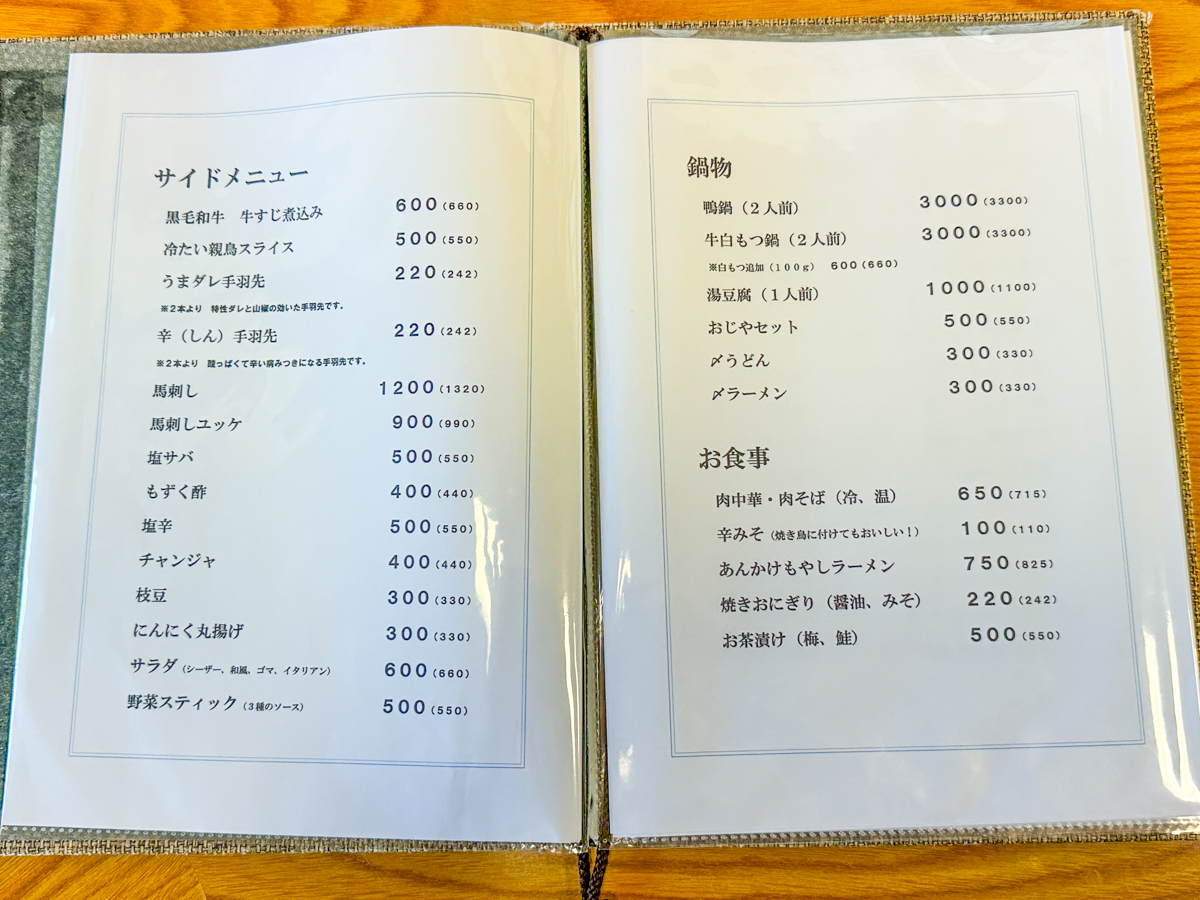 サイドメニュー
黒毛和牛　牛すじ煮込み 600(660)
冷たい親鳥スライス 500(550)
うまダレ手羽先 220(242)
※２本より　特性ダレと山椒の効いた手羽先です。
辛（しん）手羽先 220(242)
※２本より　酸っぱくて辛い病みつきになる手羽先です。
馬刺し 1200(1320)
馬刺しユッケ 900(990)
塩サバ 500(550)
もずく酢 400(440)
塩辛 500(550)
チャンジャ 400(440)
枝豆 300(330)
にんにく丸揚げ 300(330)
サラダ（シーザー、和風、ゴマ、イタリアン） 600(660)
野菜スティック（３種のソース） 500(550)
鍋物
鴨鍋（２人前） 3000(3300)
牛白もつ鍋（２人前） 3000(3300)
※白もつ追加（１００ｇ） 600(660)
湯豆腐（１人前） 1000(1100)
おじやセット 500(550)
〆うどん 300(330)
〆ラーメン 300(330)
お食事
肉中華・肉そば（冷、温） 650(715)
辛みそ（焼き鳥に付けてもおいしい！） 100(110)
あんかけもやしラーメン 750(825)
焼きおにぎり（醤油、みそ） 220(242)
お茶漬け（梅、鮭） 500(550)